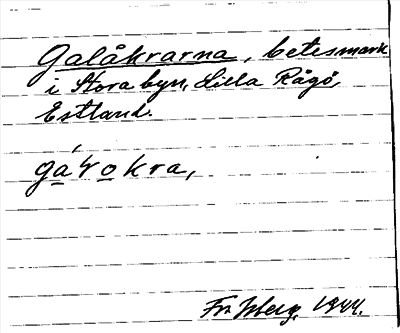 Galåkrarna, betesmark
i Stora byn, Lilla Rågö,
Estland.
gálokra,
Isberg, 1944.